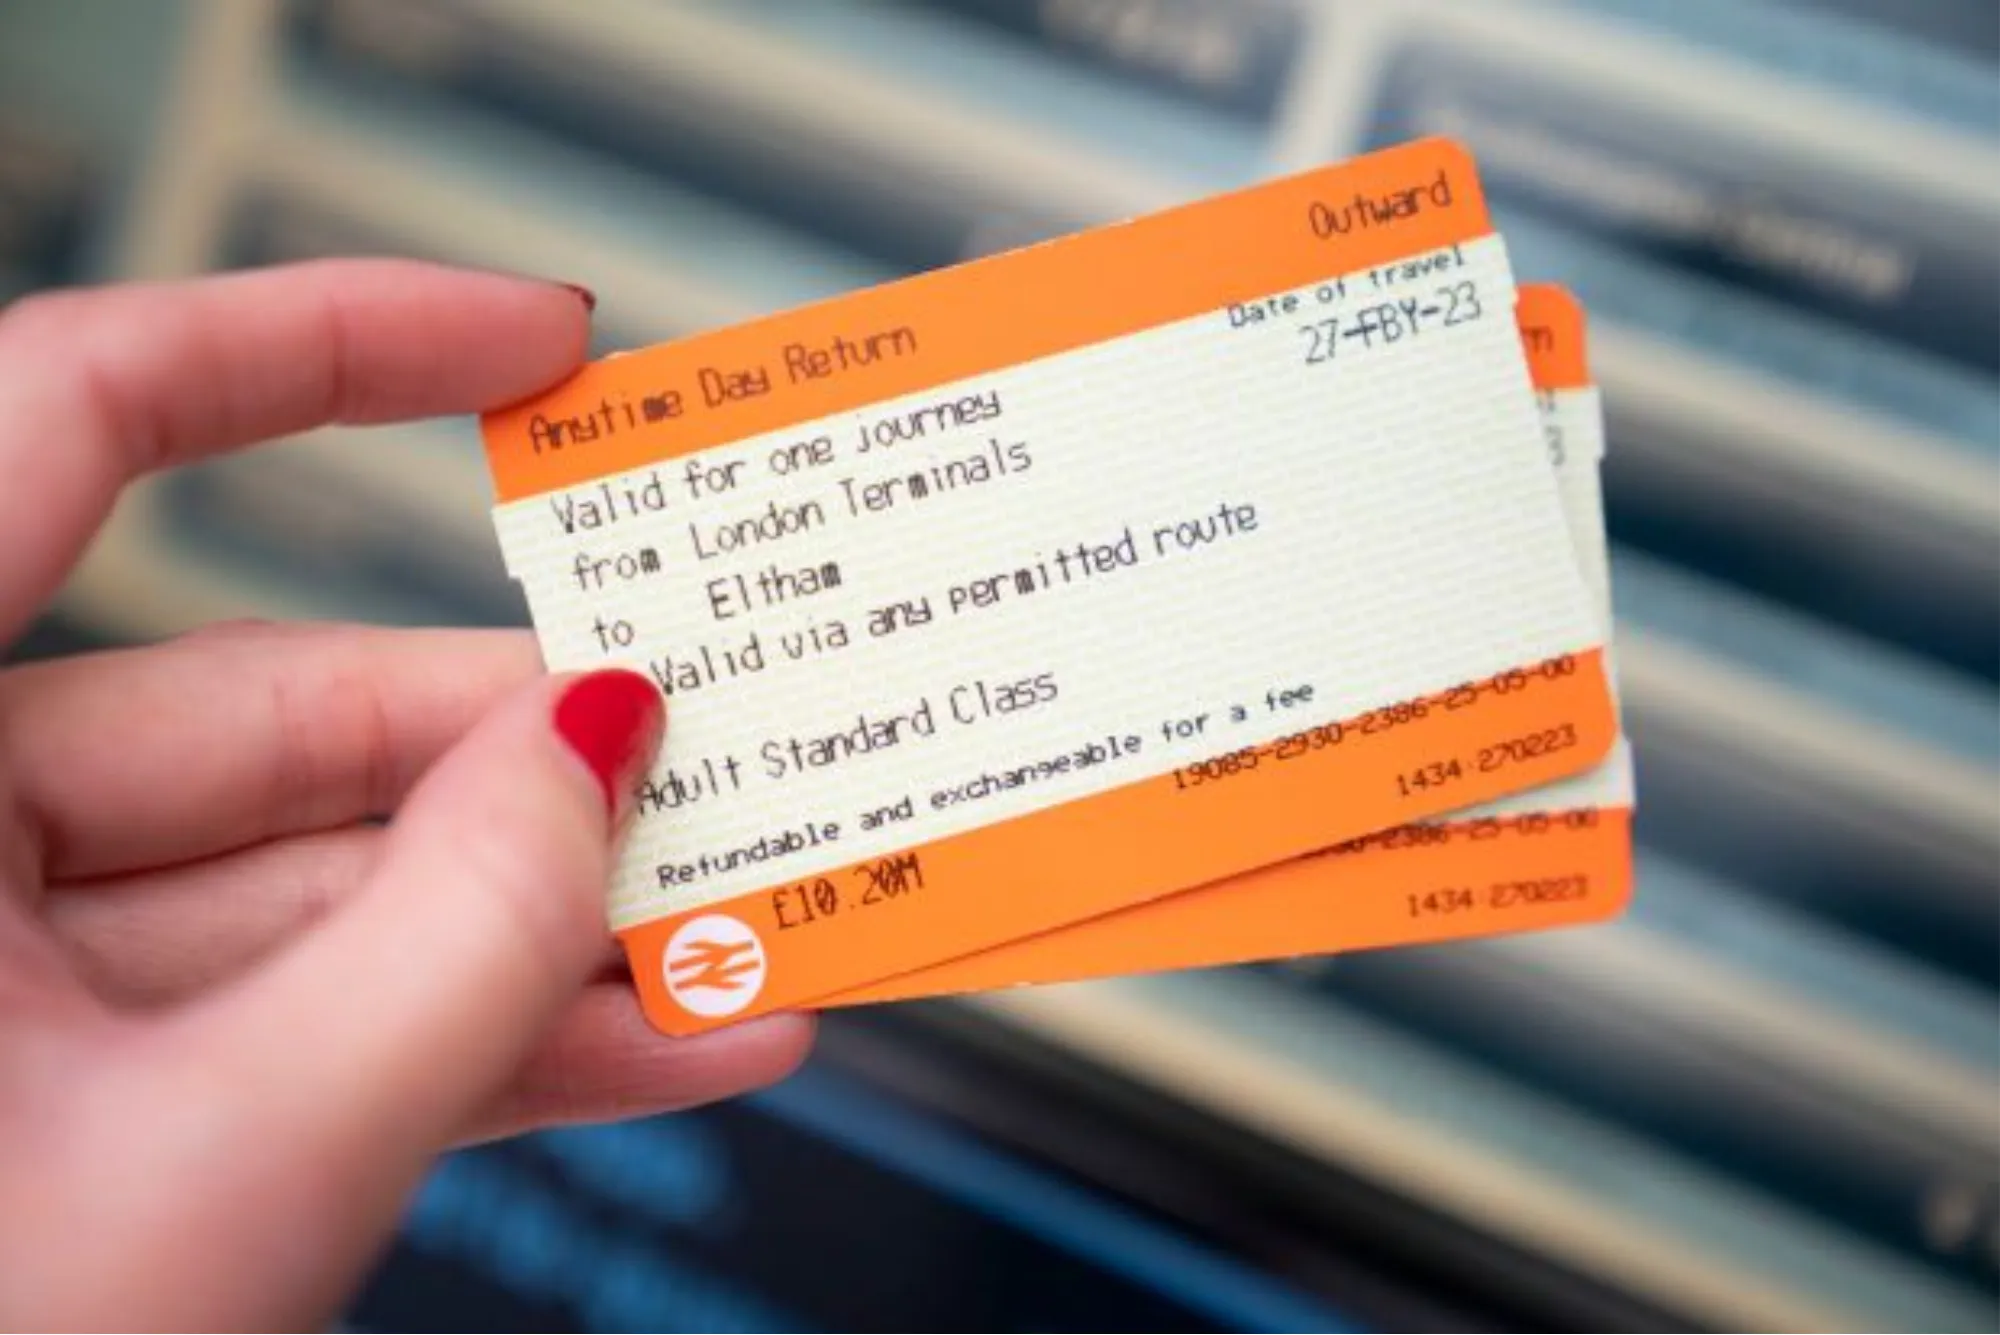 Outward
Anytime Day Return
Date of travel
27-FBY-23
Valid for one journey
from London Terminals
to Eltham
Valid via any permitted route
Adult Standard Class
Refundable and exchangeable for a fee
19085-2930-2386-25-05-00
£10.20M
1434 270223
2386-25-05-00
1434 270223